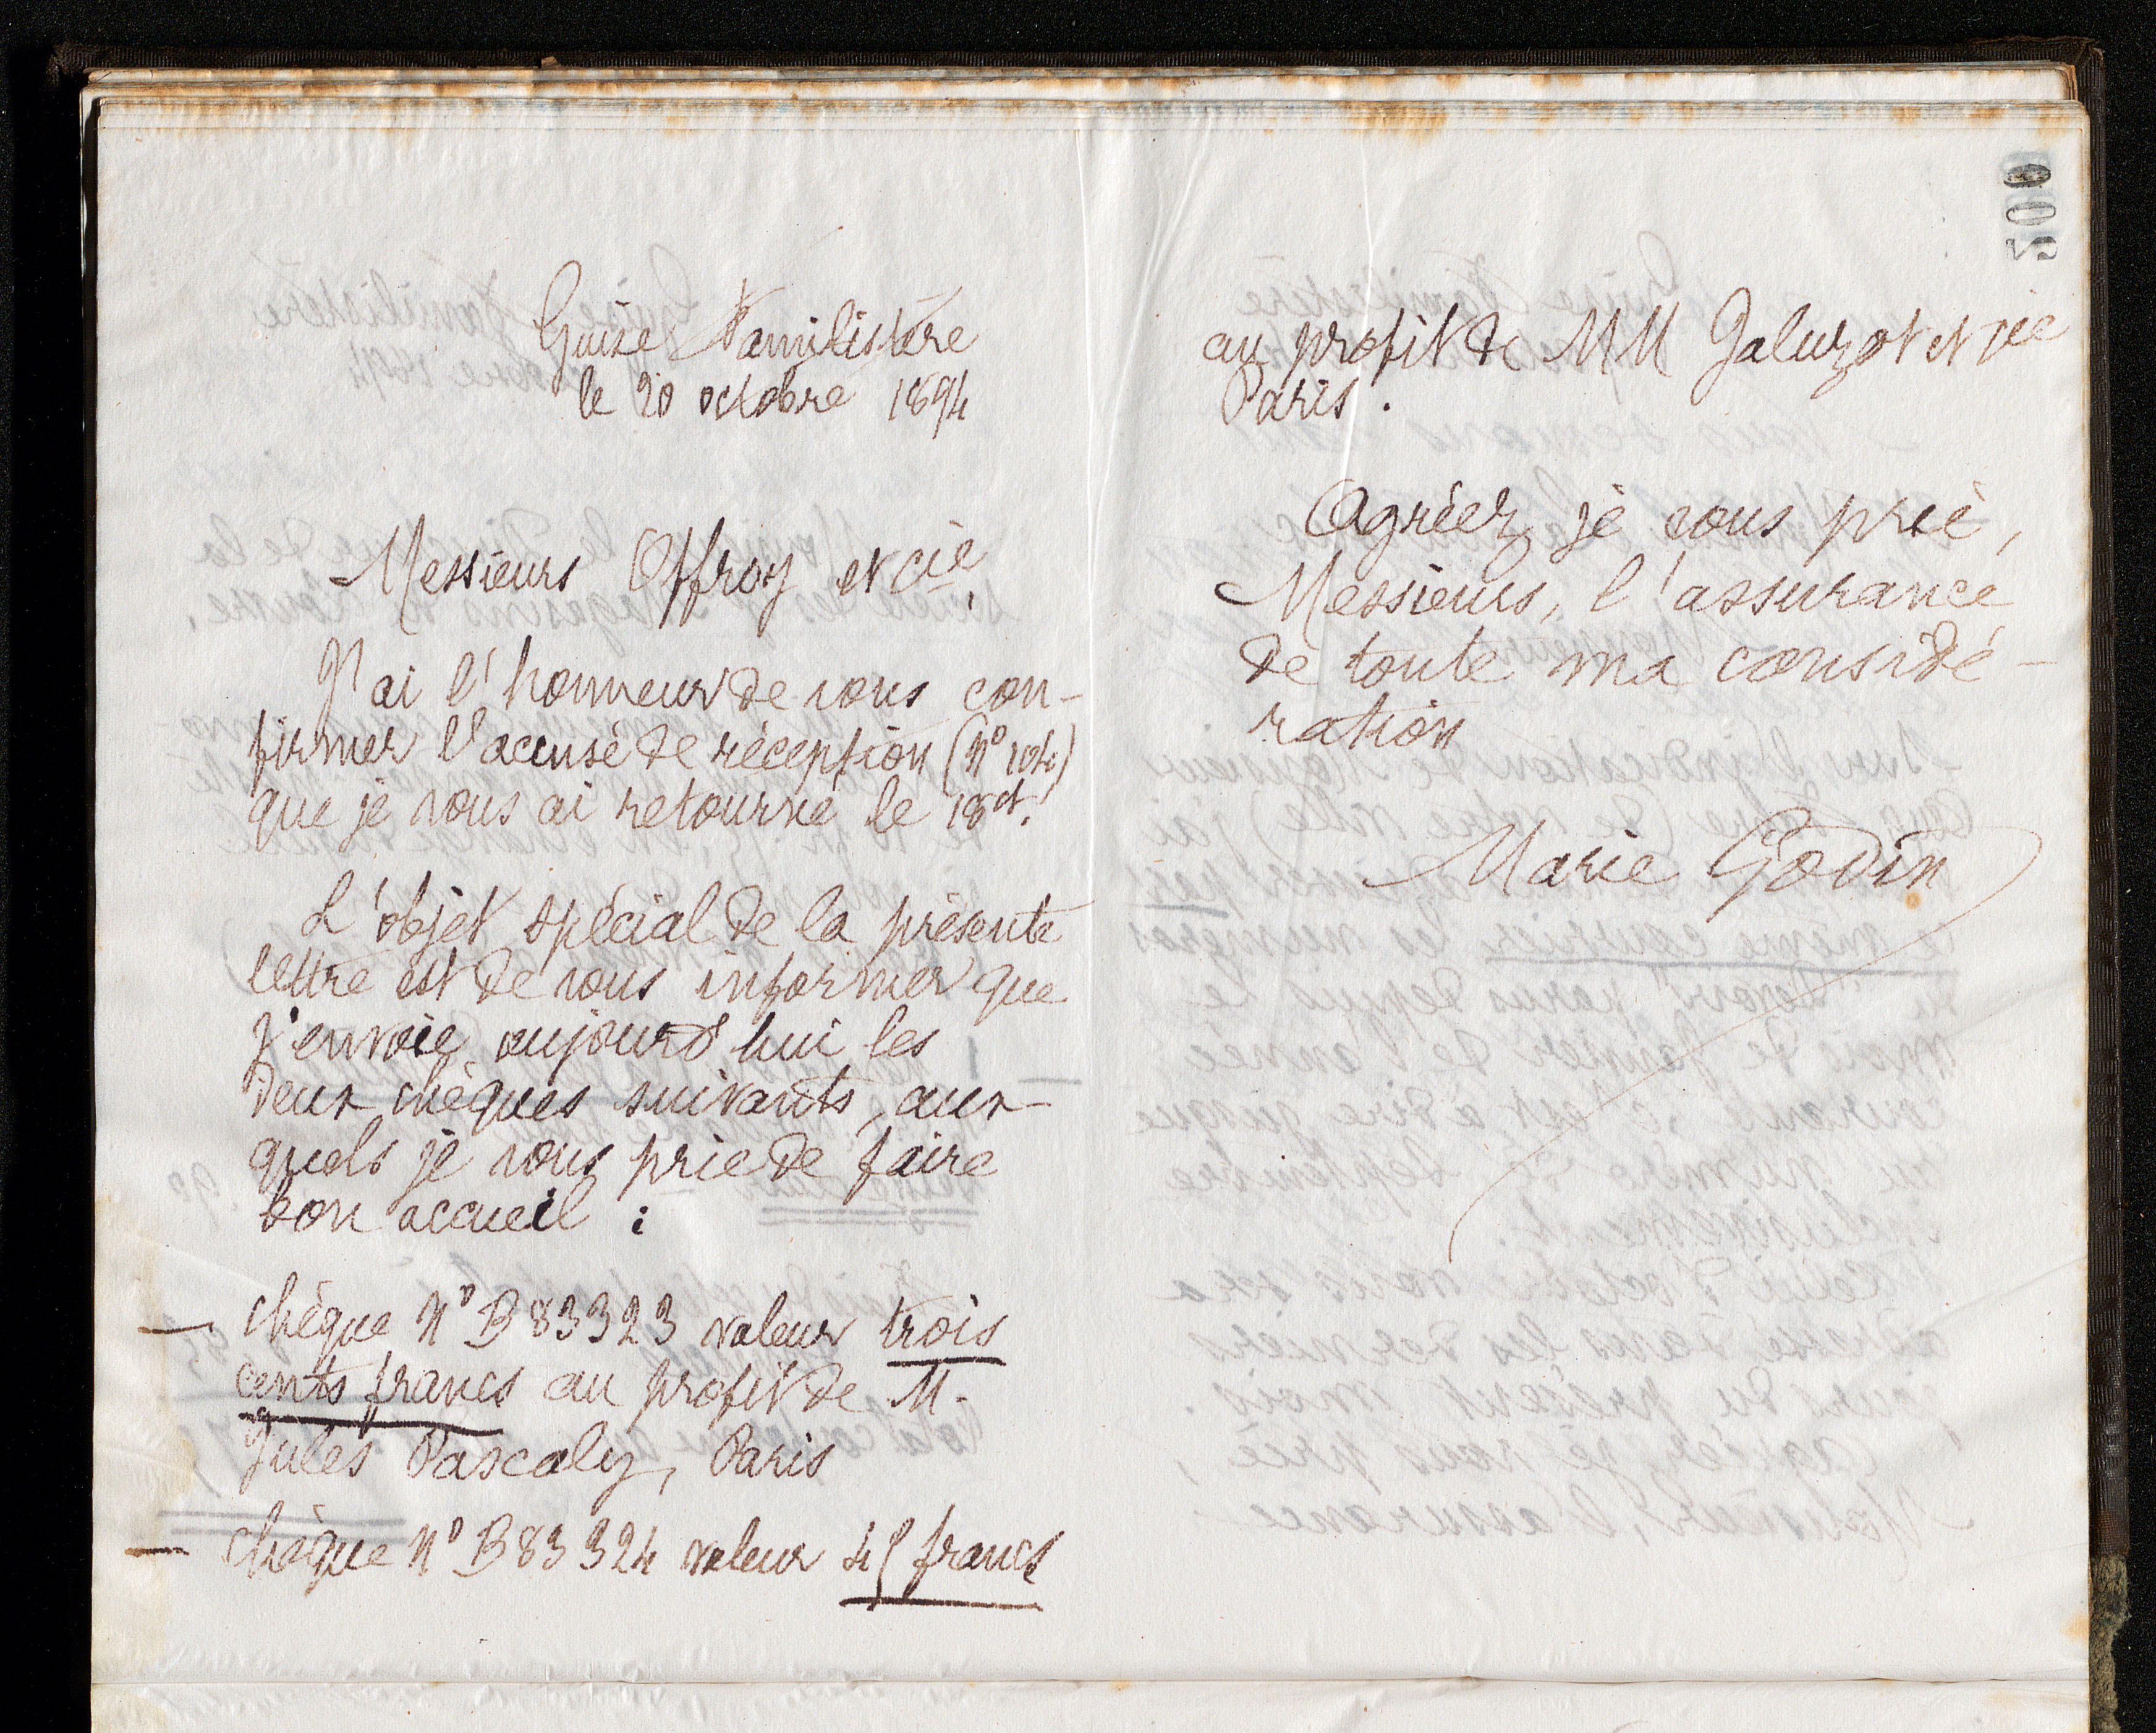 Guise Familistère
le 20 octobre 1894
Messieurs Offroy et cie,
J'ai l'honneur de vous con-
firmer l'accusé de réception (N° 104)
que je vous ai retourné le 18 ct.
L'objet spécial de la présente
lettre est de vous informer que
j'envoie aujourd'hui les
deux chèques suivants, aux-
quels je vous prie de faire
bon accueil :
— chèque N° B 83323 valeur trois
cents francs au profit de M.
Jules Pascaly, Paris
— chèque N° B 83324 valeur 45 francs
500
au profit de MM Galuzot et cie
Paris.
Agréez, je vous prie,
Messieurs, l'assurance
de toute ma considé-
ration
Marie Godin